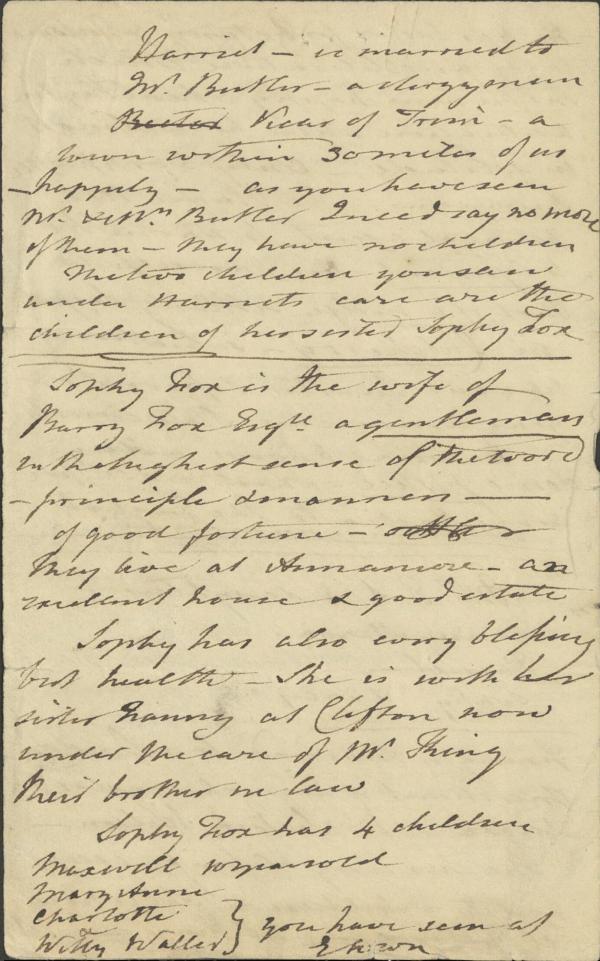 Harriet – is married to
Mr. Butler – a clergyman
Rector Vicar of Trim – a
town within 30 miles of us
– happily – as you have seen
Mr. & Mrs Butler I need say no more
of them – they have no children
The two children you saw
under Harriets care are the
children of her sister Sophy Fox
Sophy Fox is the wife of
Barry Fox Esqre a gentleman
in the highest sense of the word
– principle & manners –
of good fortune –
They live at Annamore – an
excellent house & good estate
Sophy has also every blessing
but health – She is with her
sister Fanny at Clifton now
under the care of Mr. King
their brother in law
Sophy Fox has 4 children
Maxwell 10 years old
Mary Anne
Charlotte
Willy Waller } you have seen at